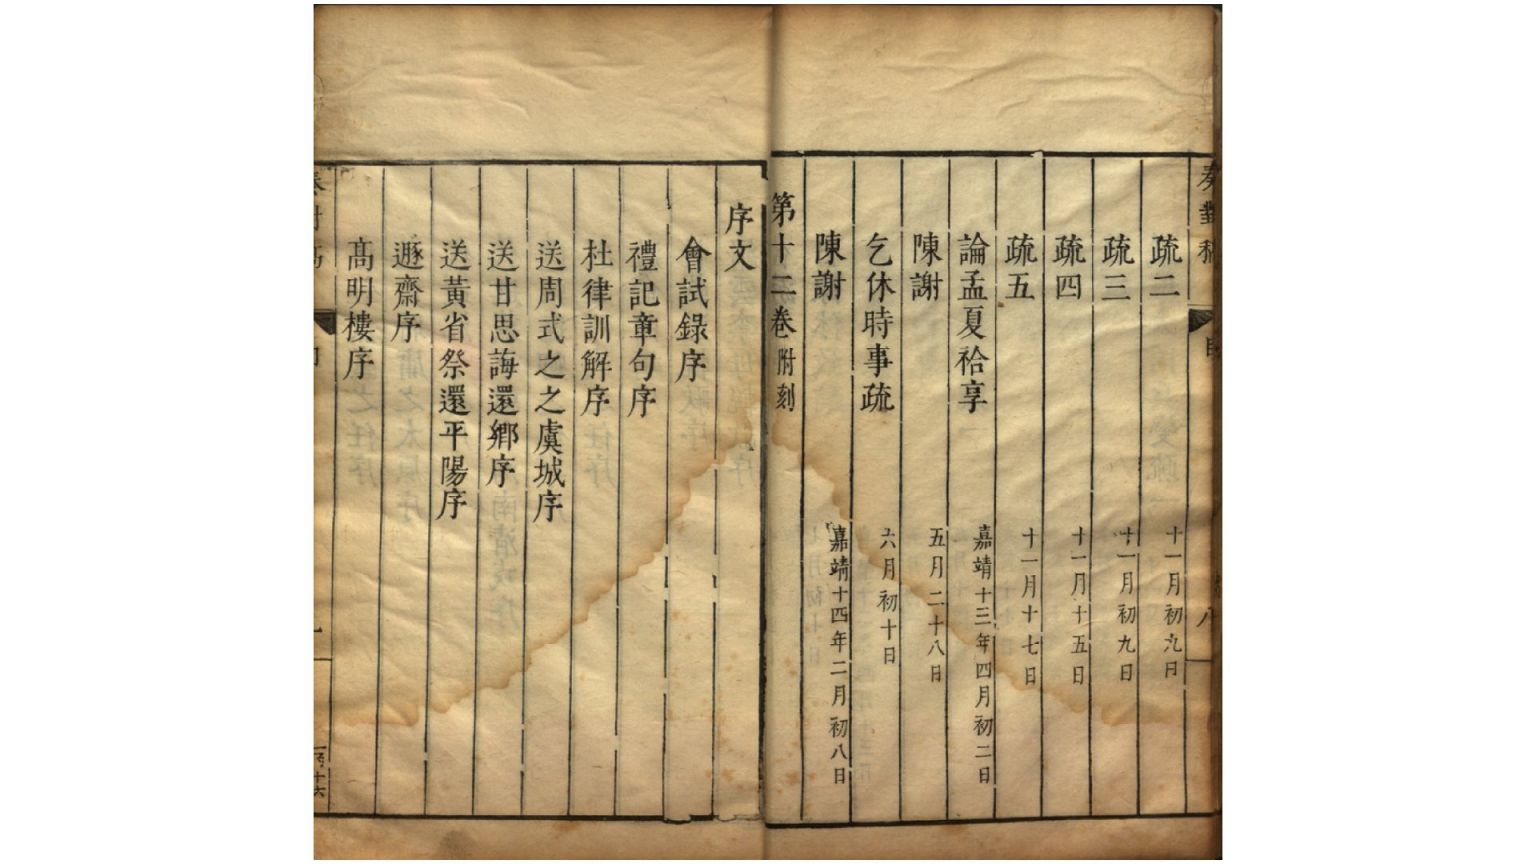 疏二 十一月初九日
疏三 十一月初九日
疏四 十一月十五日
疏五 十一月十七日
論孟夏祫享 嘉靖十三年四月初二日
陳謝 五月二十八日
乞休時事疏 六月初十日
陳謝 嘉靖十四年二月初八日
第十二卷附刻
序文
會試錄序
禮記章句序
杜律訓解序
送周式之之虞城序
送甘思誨還鄉序
送黃省祭還平陽序
遯齋序
髙明樓序